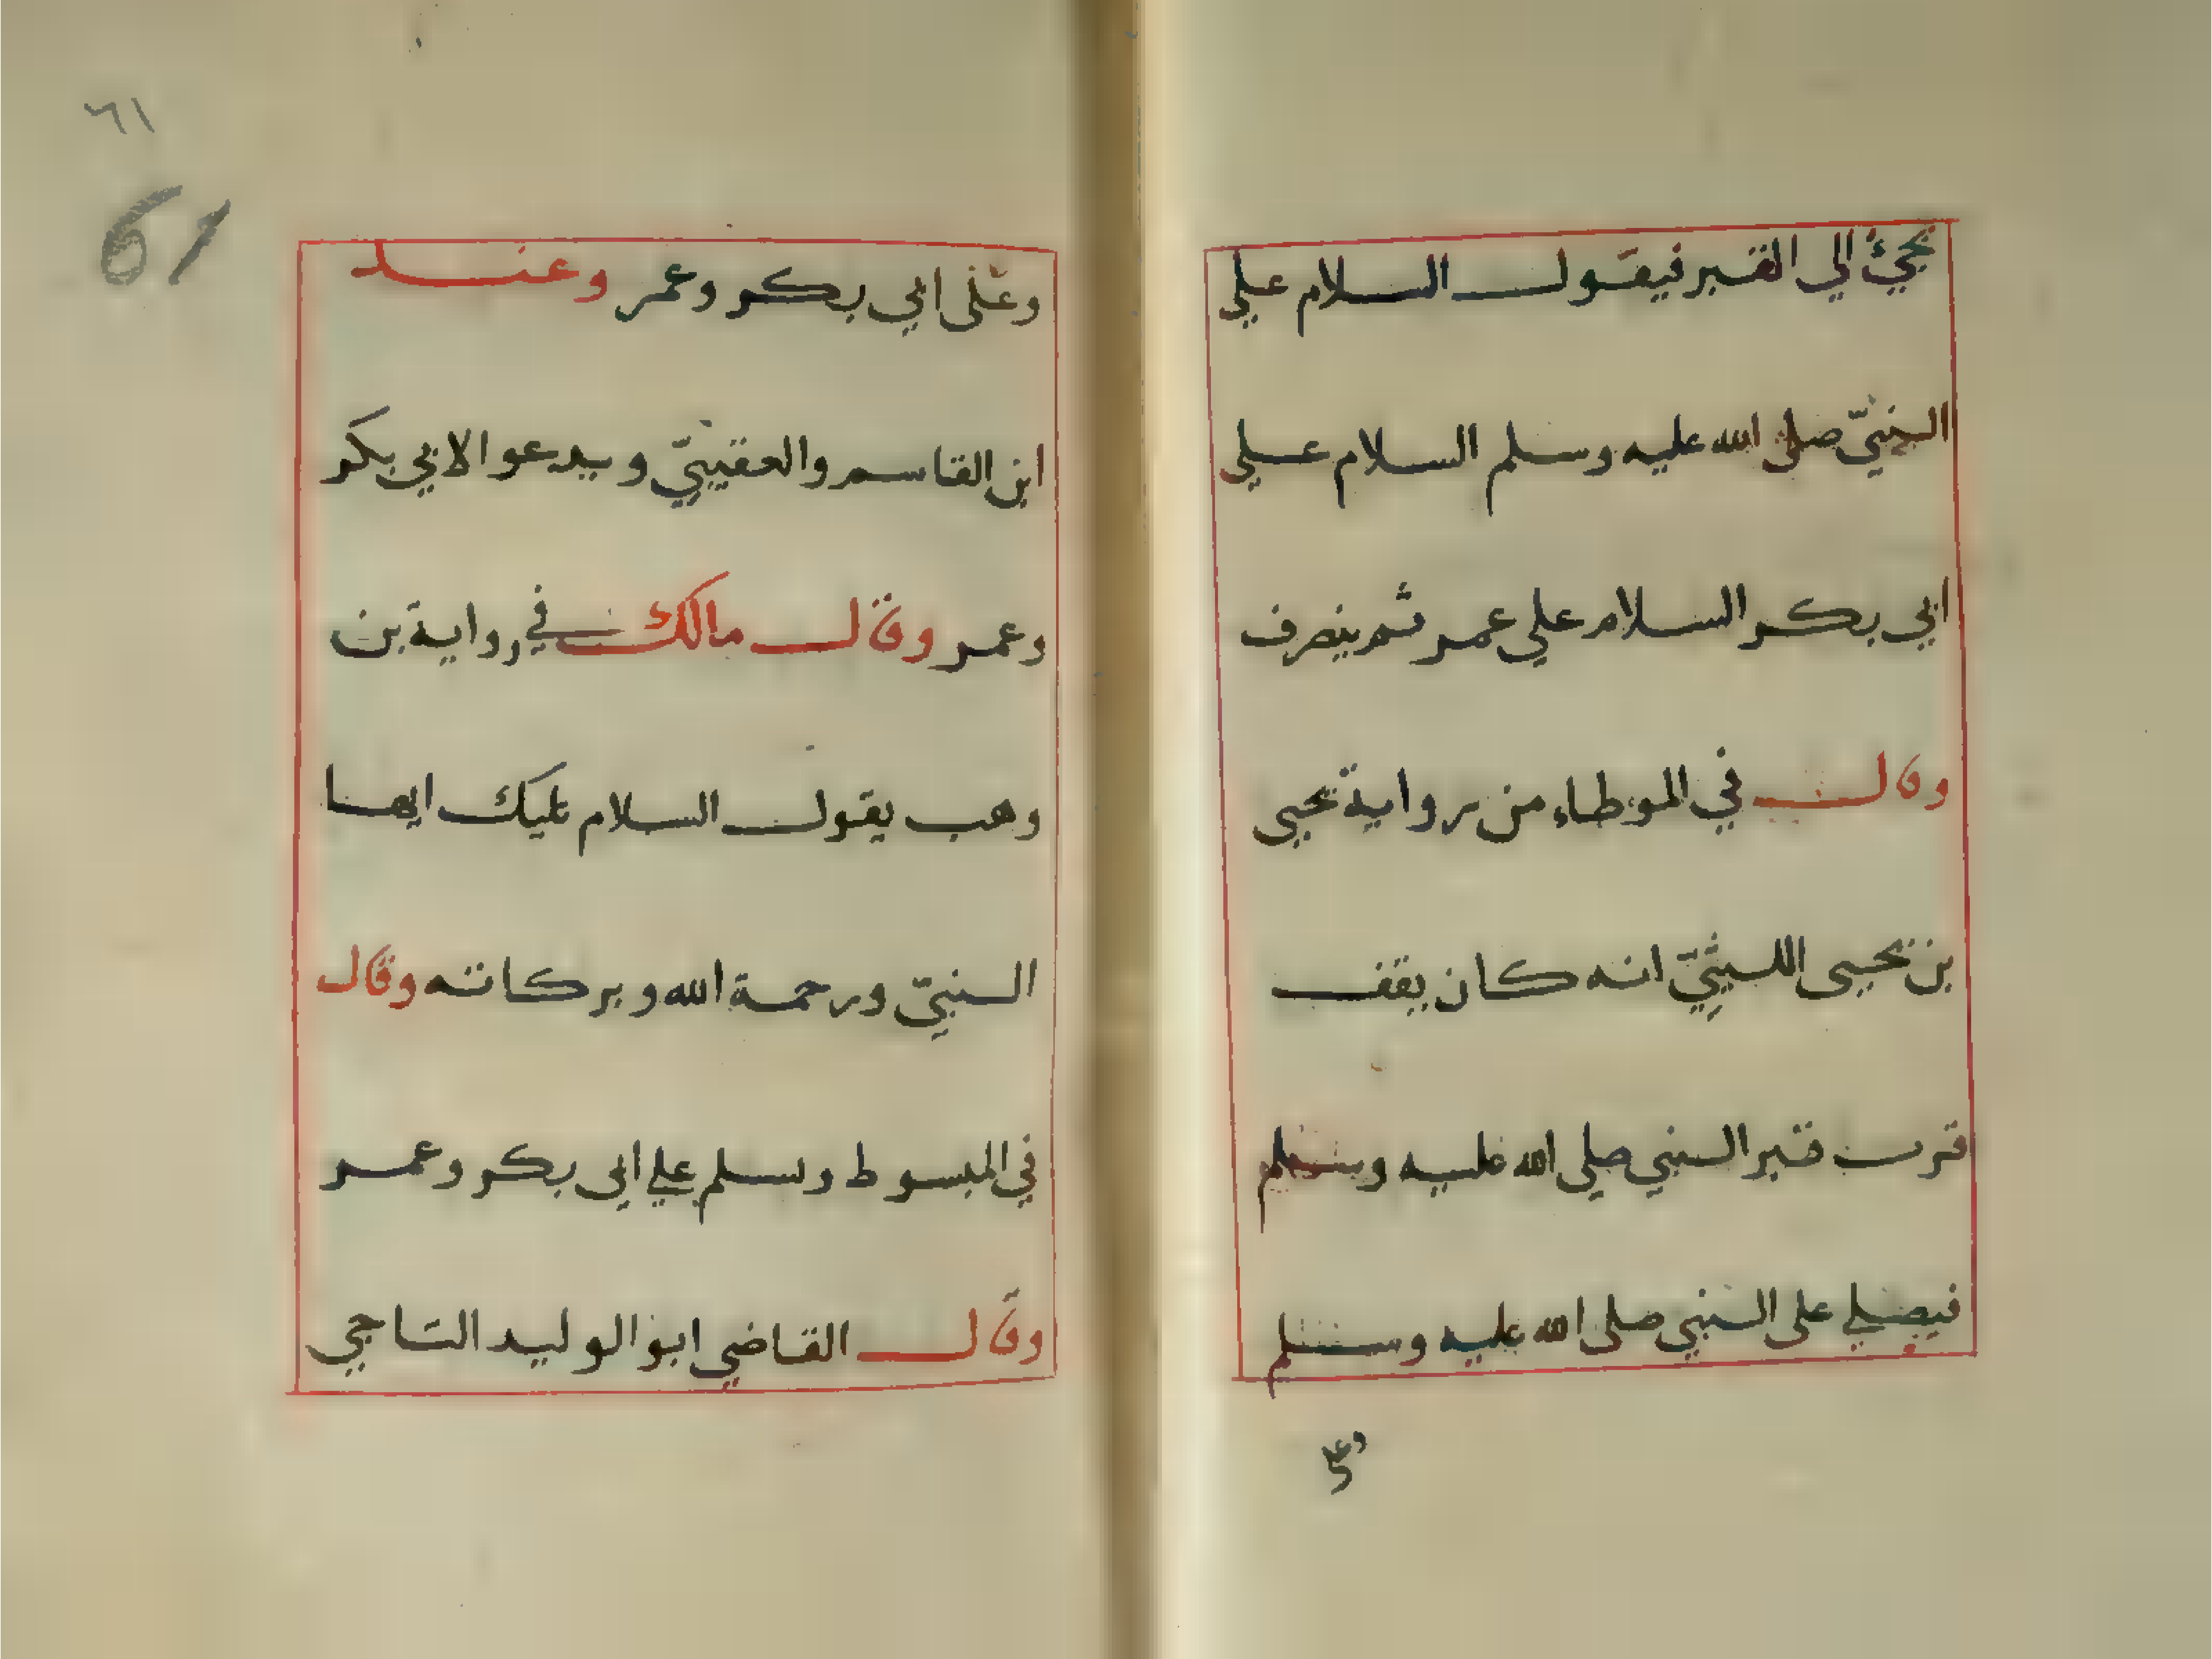 يجيئ الي القبر فيقول السلام علي
النبيّ صلى الله عليه وسلم السلام علي
ابي بكر السلام علي عمر ثم ينصرف
وقال في الموطاء من رواية يحيى
بن يحيى الليثيّ انه كان يقف
قرب قبر النبي صلي الله عليه وسلم
فيصلي على النبي صلى الله عليه وسلم
٦١
61
وعلى ابي بكر وعمر وعند
ابن القاسم والعقيبيّ ويدعوا لابي بكر
وعمر وقال مالك في رواية بن
وهب يقول السلام عليك ايها
النبيّ ورحمة الله وبركاته وقال
في المبسوط وسلم علي ابي بكر وعمر
وقال القاضي ابو الوليد التاجي